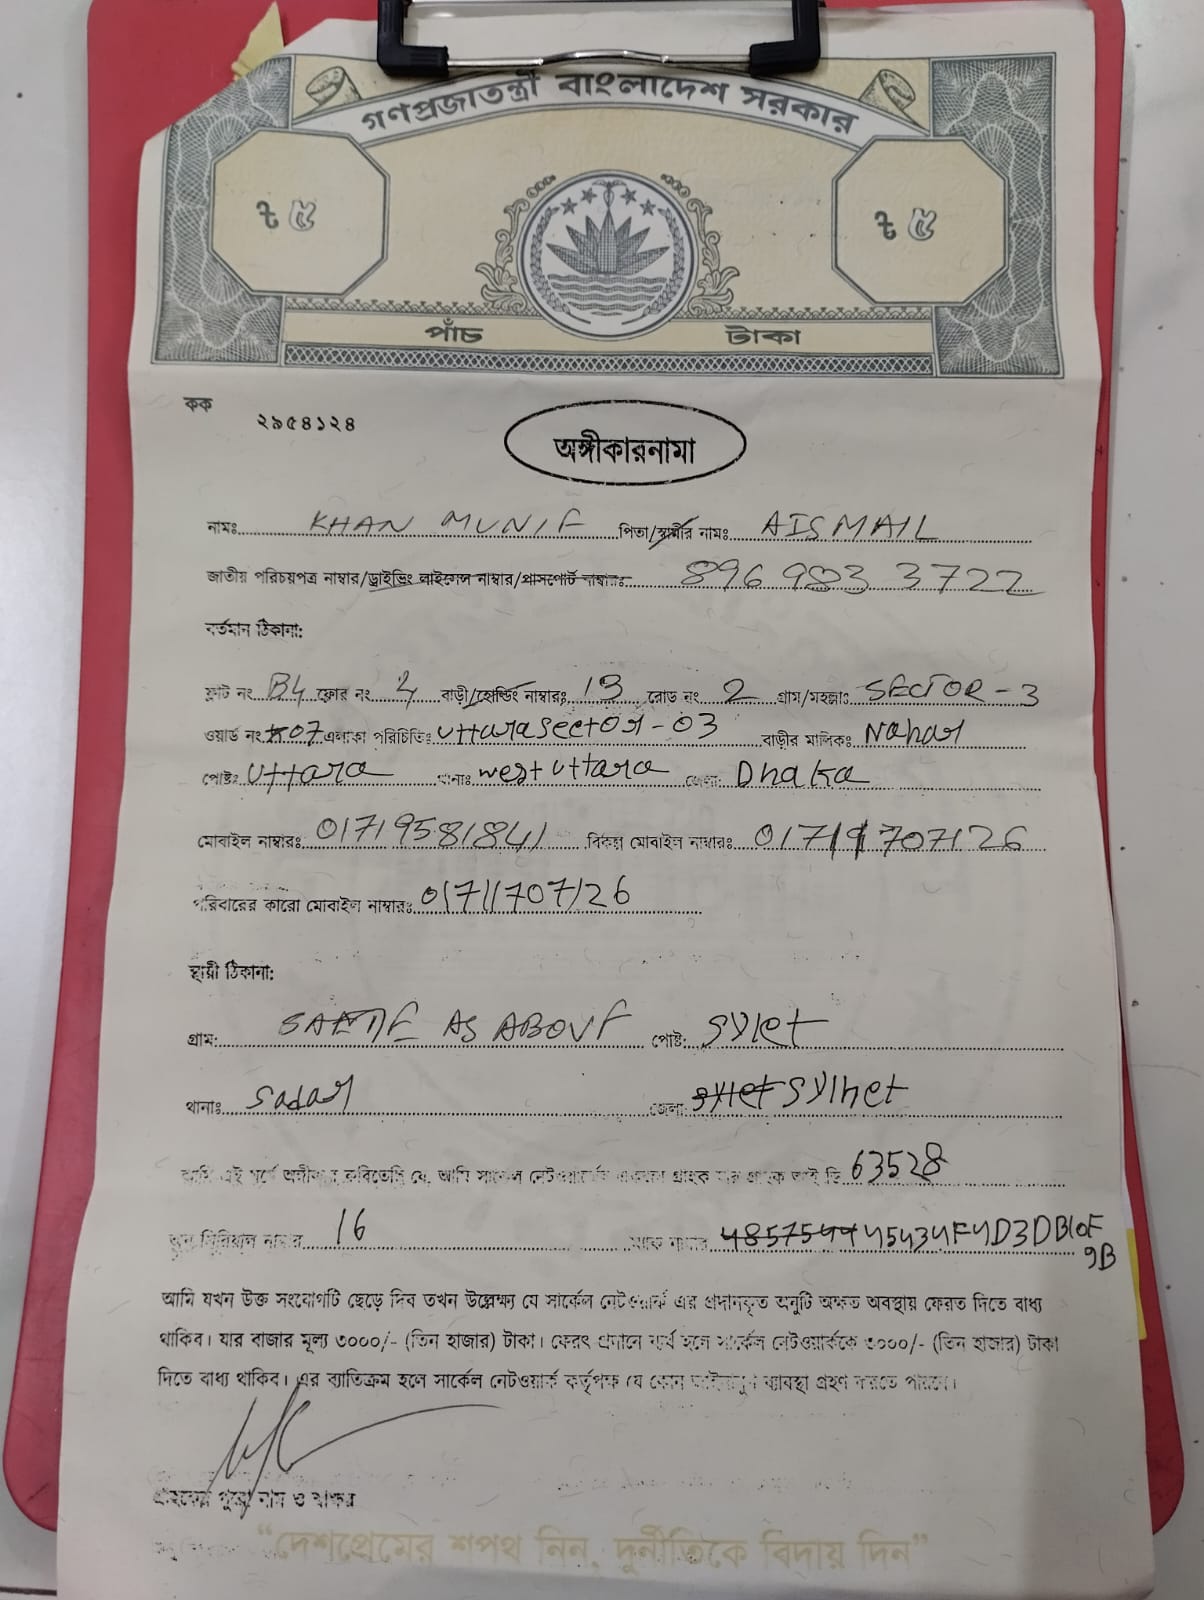 গণপ্রজাতন্ত্রী বাংলাদেশ সরকার
৳ ৫ ৳ ৫
পাঁচ টাকা
কক ২৯৫৪১২৪
অঙ্গীকারনামা
নামঃ KHAN MUNIF পিতা/স্বামীর নামঃ AISMAIL
জাতীয় পরিচয়পত্র নাম্বার/ড্রাইভিং লাইসেন্স নাম্বার/পাসপোর্ট নাম্বারঃ 896 983 3722
বর্তমান ঠিকানা:
ফ্লাট নং B4 ফ্লোর নং বাড়ী/হোল্ডিং নাম্বারঃ 13 রোড নং 2 গ্রাম/মহল্লাঃ SECTOR-3
ওয়ার্ড নং 07 এলাকা পরিচিতিঃ Uttara sector-03 বাড়ীর মালিকঃ Nahar
পোষ্টঃ Uttara থানাঃ west uttara জেলা: Dhaka
মোবাইল নাম্বারঃ 01719581841 বিকল্প মোবাইল নাম্বারঃ
পরিবারের কারো মোবাইল নাম্বারঃ 01711707126
স্থায়ী ঠিকানা:
গ্রাম: SAME AS ABOVE পোষ্ট: Sylet
থানাঃ Sadar জেলা: sylet Sylhet
আমি এই মর্মে অঙ্গীকার করিতেছি যে, আমি সার্কেল নেটওয়ার্কের একজন গ্রাহক যার গ্রাহক আই ডি 63528
অনু সিরিয়াল নাম্বার 16 ম্যাক নাম্বার
9B
আমি যখন উক্ত সংযোগটি ছেড়ে দিব তখন উল্লেক্ষ্য যে সার্কেল নেটওয়ার্ক এর প্রদানকৃত অনুটি অক্ষত অবস্থায় ফেরত দিতে বাধ্য
থাকিব। যার বাজার মূল্য ৩০০০/- (তিন হাজার) টাকা। ফেরৎ প্রদানে ব্যর্থ হলে সার্কেল নেটওয়ার্ককে ৩০০০/- (তিন হাজার) টাকা
দিতে বাধ্য থাকিব। এর ব্যতিক্রম হলে সার্কেল নেটওয়ার্ক কর্তৃপক্ষ যে কোন আইনানুগ ব্যাবস্থা গ্রহণ করতে পারবে।
গ্রাহকের পুরো নাম ও স্বাক্ষর
“দেশপ্রেমের শপথ নিন, দুর্নীতিকে বিদায় দিন”